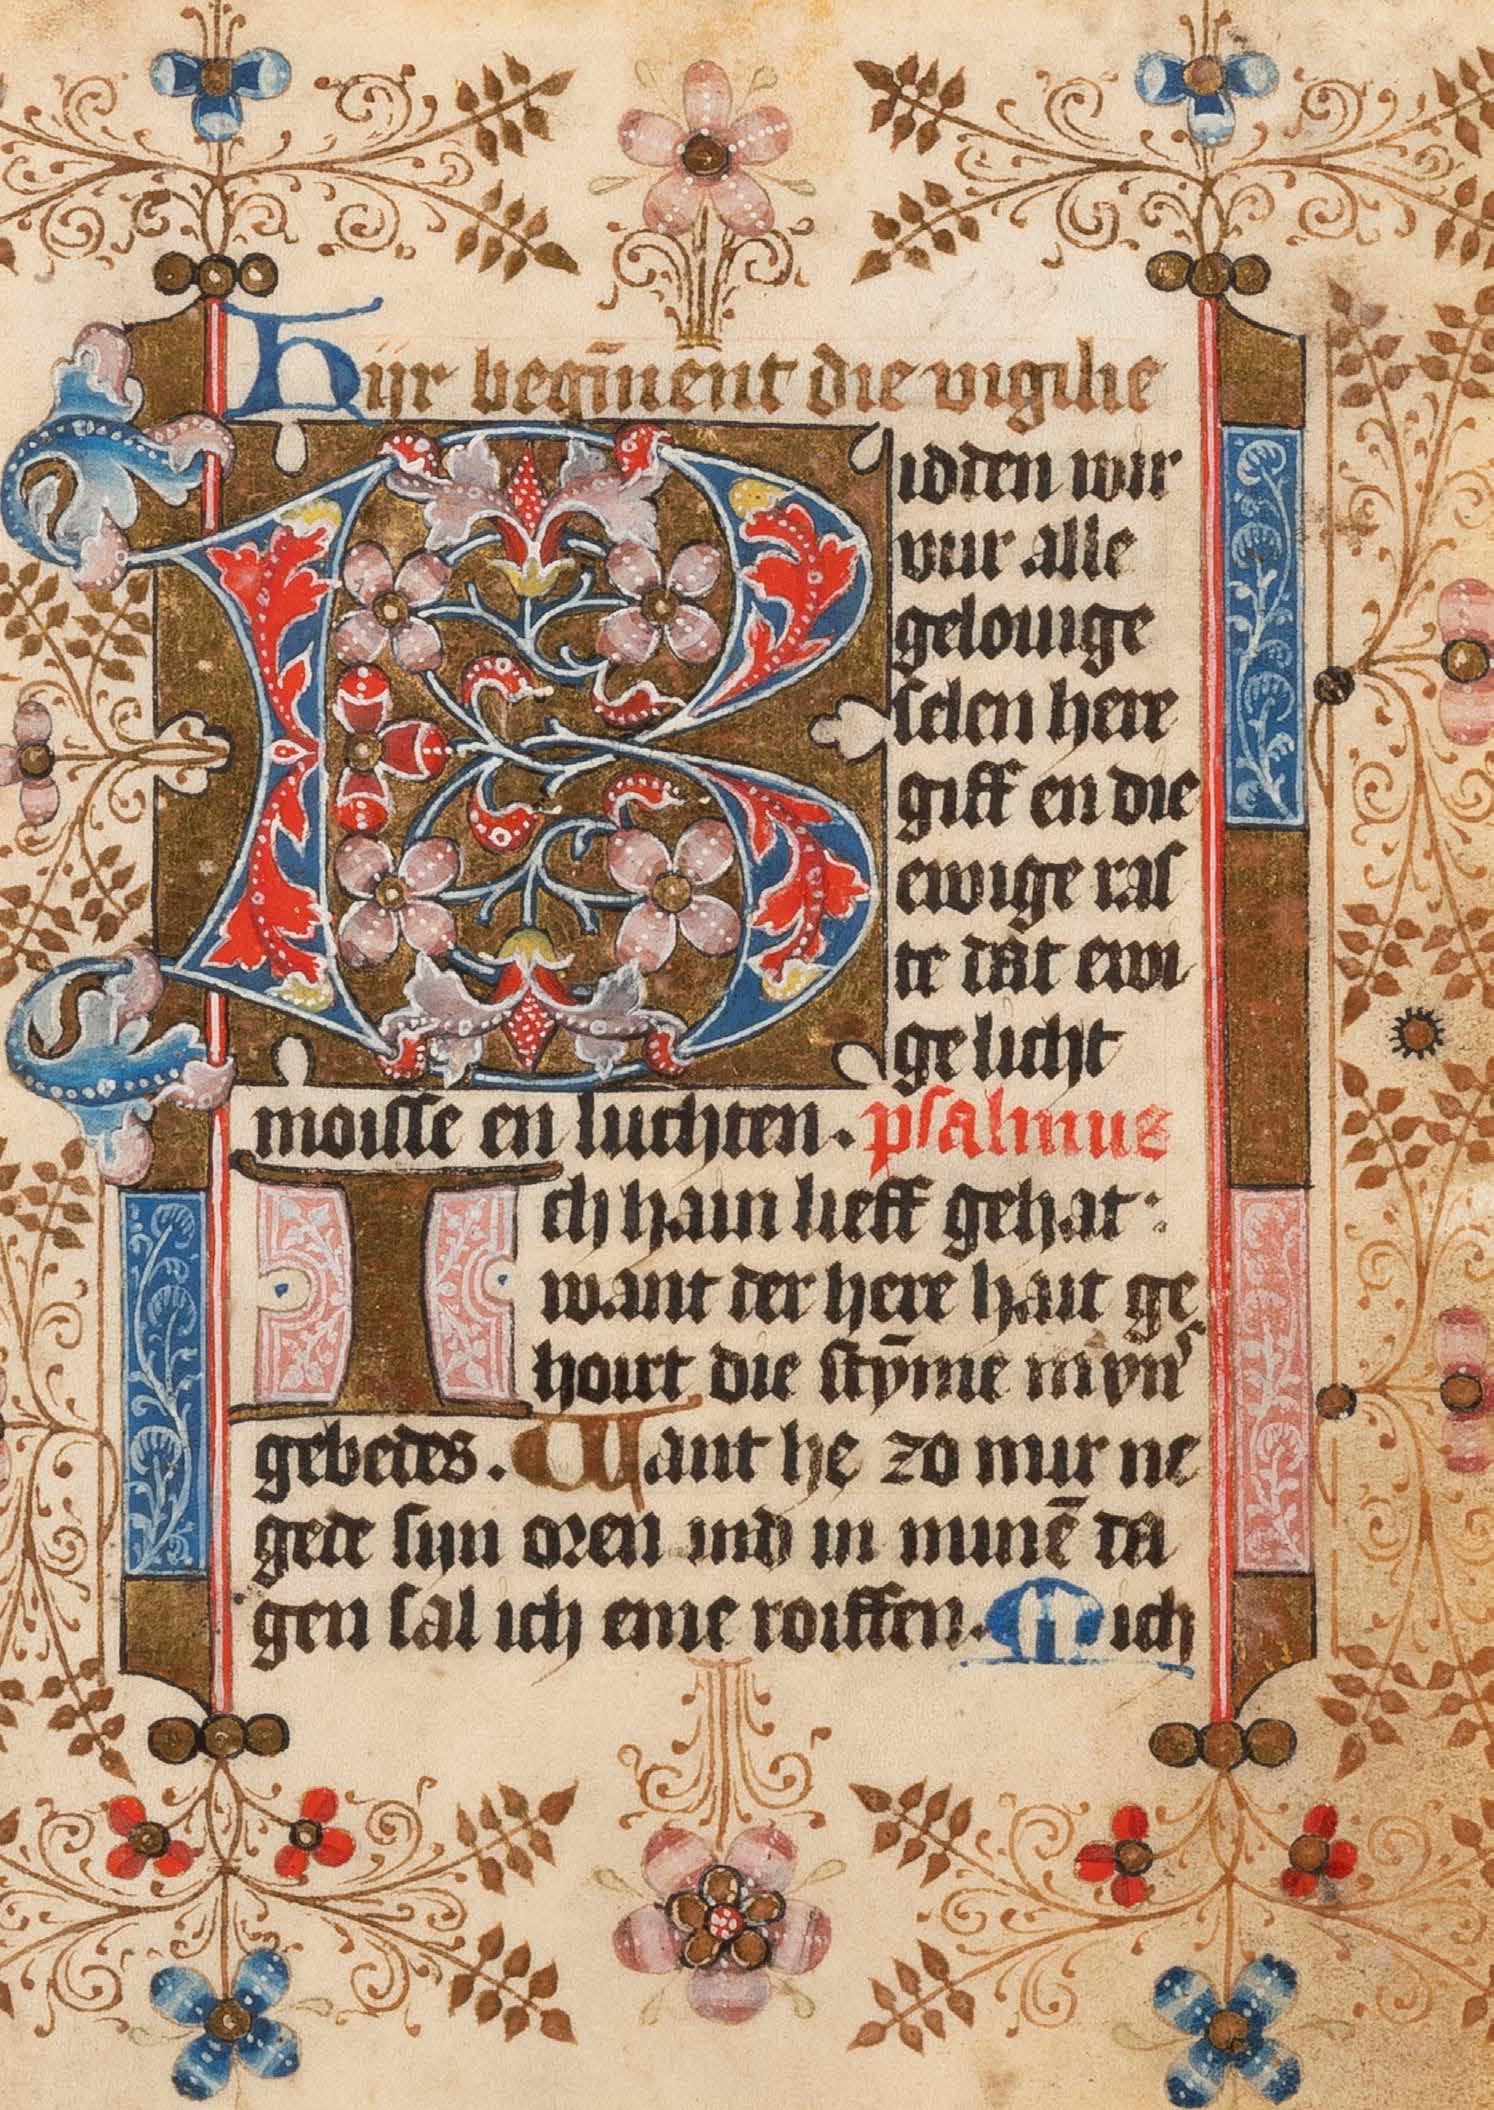 Hijr begīnēnt die vigilie
Bidden wir
vur alle
gelouige
selen here
giff en die
ewige ras
te dāt ewi
ge licht
moisse en luchten. psalmus
Ich hain lieff gehat:
want der here hait ge
hoirt die stȳme myns
gebedes. Want he zo mir ne
gede sijn oren ind in minē da
gen sal ich eme roiffen. Mich